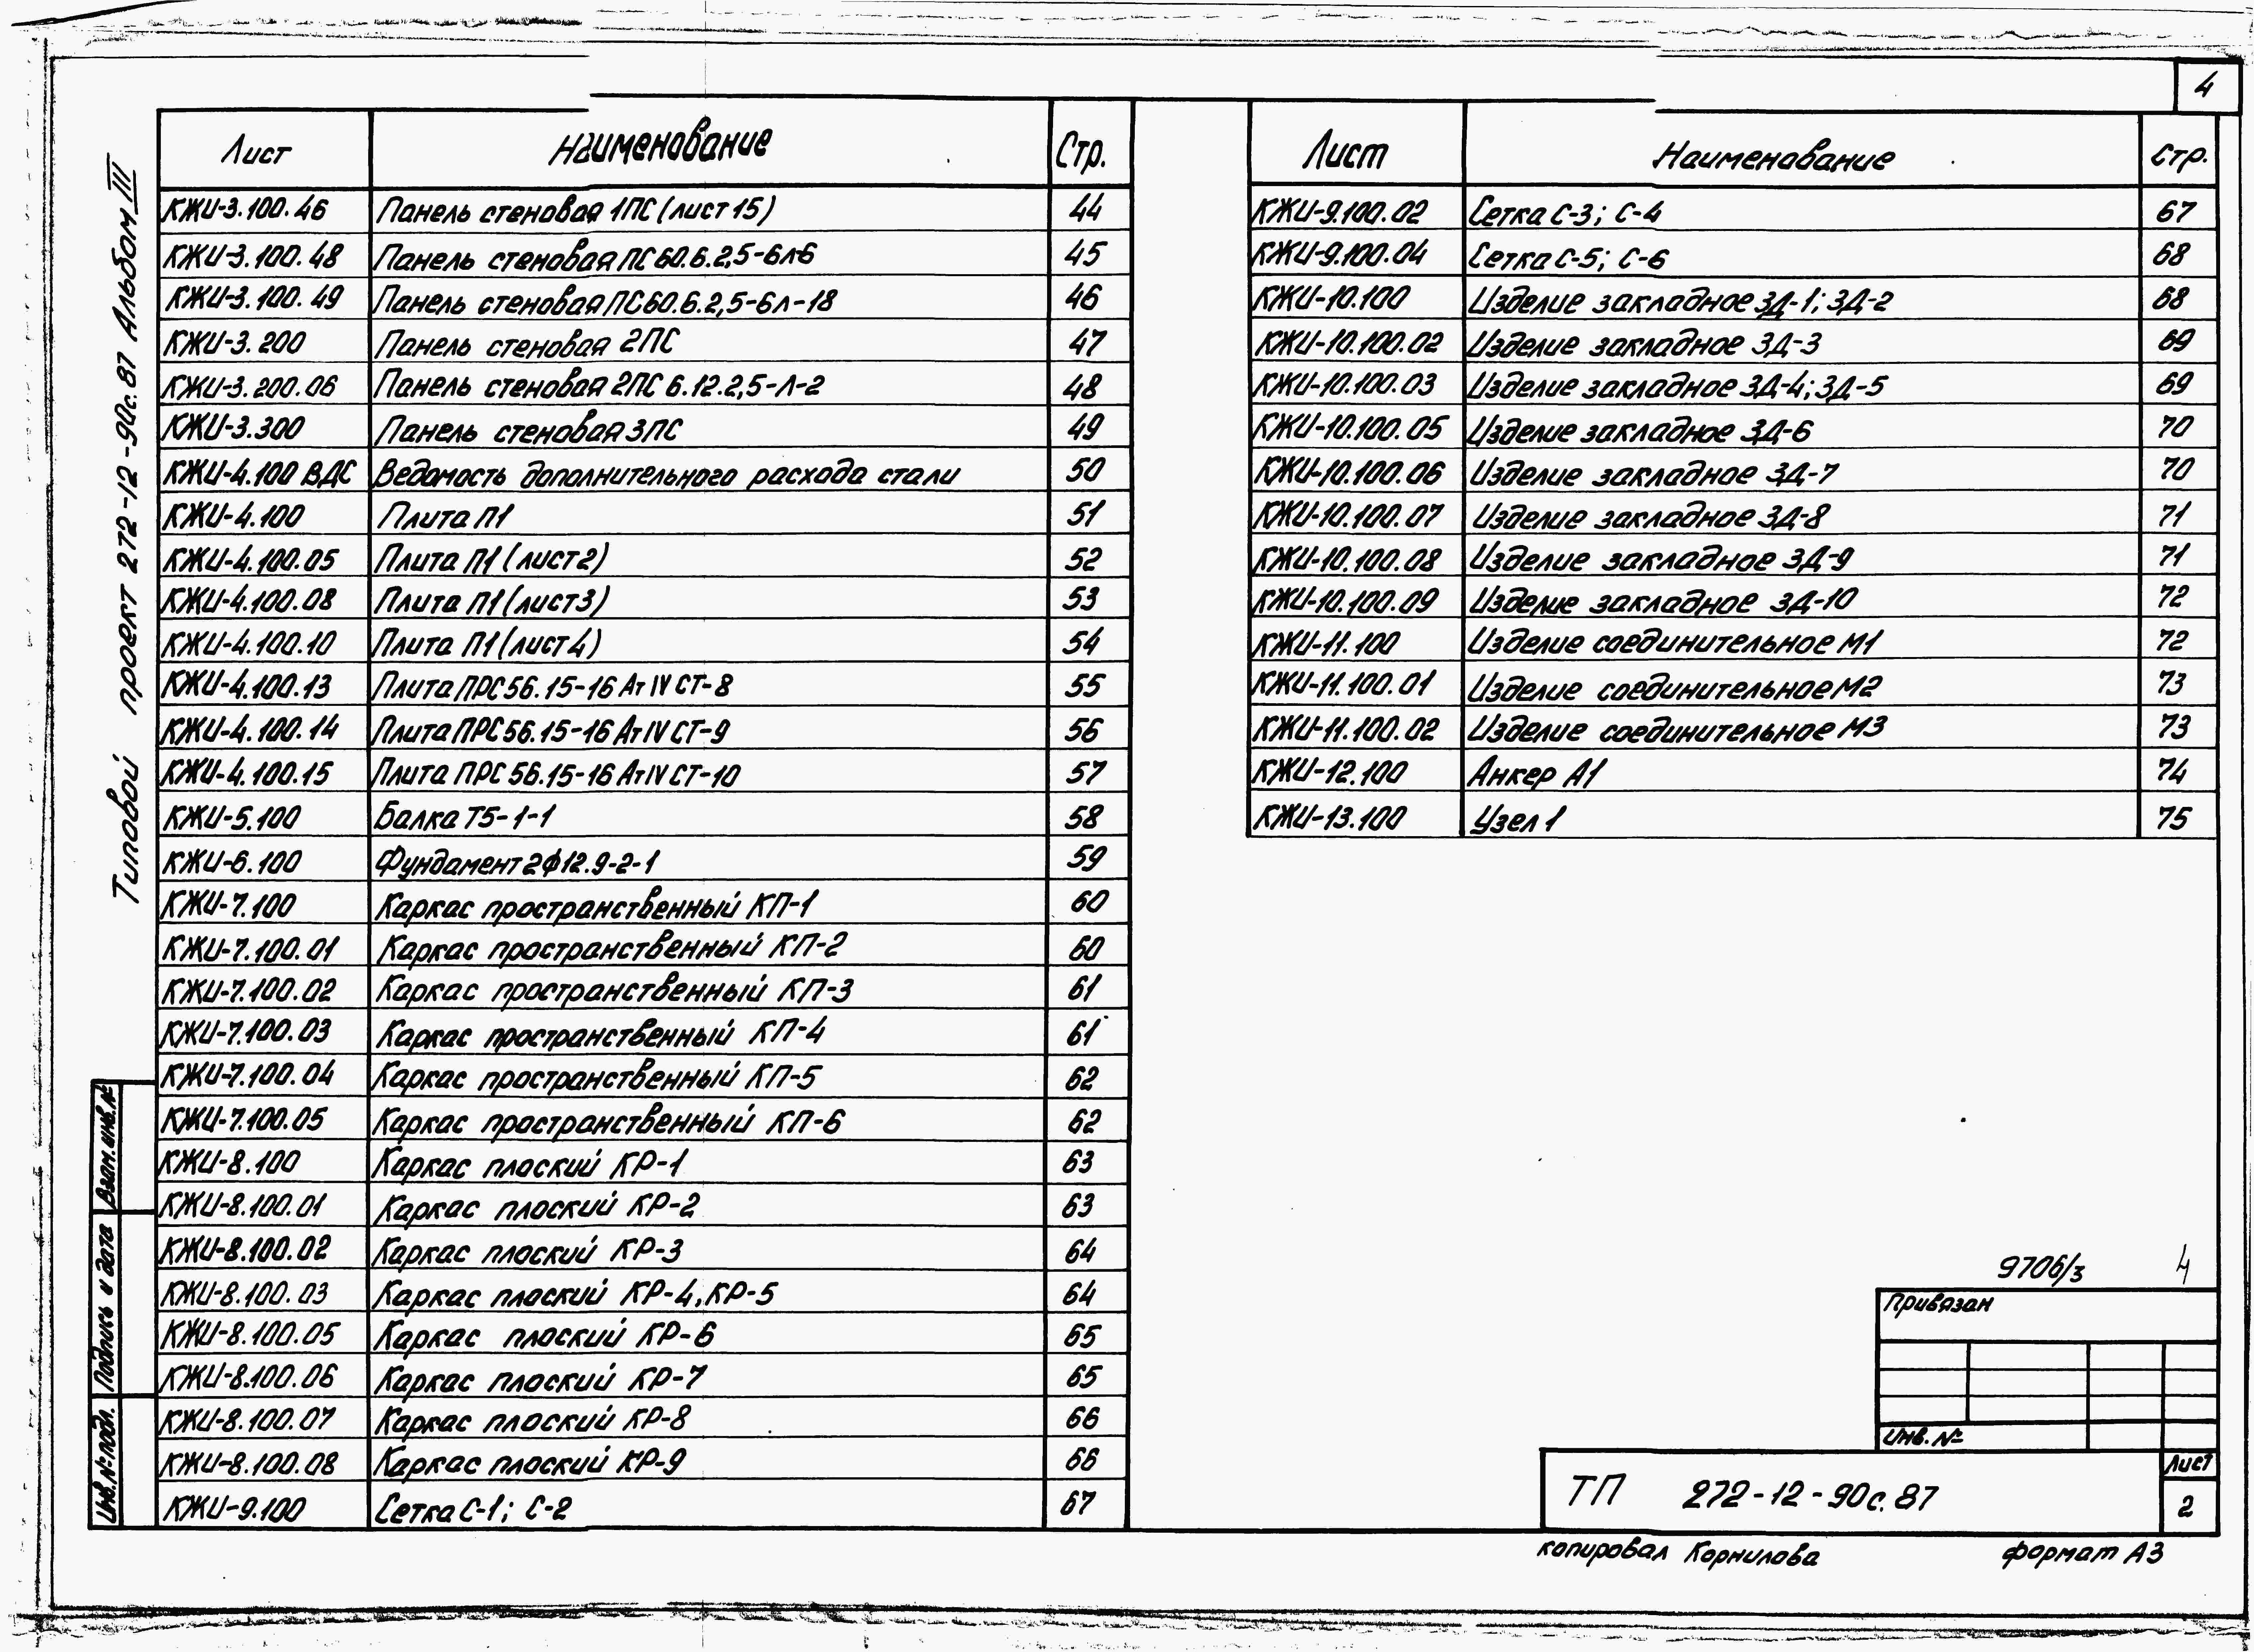 4
Типовой проект 272-12-90с.87 Альбом III
Лист Наименование Стр.
КЖИ-3.100.46 Панель стеновая 1ПС (лист 15) 44
КЖИ-3.100.48 Панель стеновая ПС60.6.2,5-6л-6 45
КЖИ-3.100.49 Панель стеновая ПС60.6.2,5-6л-18 46
КЖИ-3.200 Панель стеновая 2ПС 47
КЖИ-3.200.06 Панель стеновая 2ПС 6.12.2,5-Л-2 48
КЖИ-3.300 Панель стеновая 3ПС 49
КЖИ-4.100 ВДС Ведомость дополнительного расхода стали 50
КЖИ-4.100 Плита П1 51
КЖИ-4.100.05 Плита П1 (лист 2) 52
КЖИ-4.100.08 Плита П1 (лист 3) 53
КЖИ-4.100.10 Плита П1 (лист 4) 54
КЖИ-4.100.13 Плита ПРС56.15-16 АтIV СТ-8 55
КЖИ-4.100.14 Плита ПРС56.15-16 АтIV СТ-9 56
КЖИ-4.100.15 Плита ПРС56.15-16 АтIV СТ-10 57
КЖИ-5.100 Балка Т5-1-1 58
КЖИ-6.100 Фундамент 2Ф12.9-2-1 59
КЖИ-7.100 Каркас пространственный КП-1 60
КЖИ-7.100.01 Каркас пространственный КП-2 60
КЖИ-7.100.02 Каркас пространственный КП-3 61
КЖИ-7.100.03 Каркас пространственный КП-4 61
КЖИ-7.100.04 Каркас пространственный КП-5 62
КЖИ-7.100.05 Каркас пространственный КП-6 62
КЖИ-8.100 Каркас плоский КР-1 63
КЖИ-8.100.01 Каркас плоский КР-2 63
КЖИ-8.100.02 Каркас плоский КР-3 64
КЖИ-8.100.03 Каркас плоский КР-4, КР-5 64
КЖИ-8.100.05 Каркас плоский КР-6 65
КЖИ-8.100.06 Каркас плоский КР-7 65
КЖИ-8.100.07 Каркас плоский КР-8 66
КЖИ-8.100.08 Каркас плоский КР-9 66
КЖИ-9.100 Сетка С-1; С-2 67
Лист Наименование Стр.
КЖИ-9.100.02 Сетка С-3; С-4 67
КЖИ-9.100.04 Сетка С-5; С-6 68
КЖИ-10.100 Изделие закладное ЗД-1; ЗД-2 68
КЖИ-10.100.02 Изделие закладное ЗД-3 69
КЖИ-10.100.03 Изделие закладное ЗД-4; ЗД-5 69
КЖИ-10.100.05 Изделие закладное ЗД-6 70
КЖИ-10.100.06 Изделие закладное ЗД-7 70
КЖИ-10.100.07 Изделие закладное ЗД-8 71
КЖИ-10.100.08 Изделие закладное ЗД-9 71
КЖИ-10.100.09 Изделие закладное ЗД-10 72
КЖИ-11.100 Изделие соединительное М1 72
КЖИ-11.100.01 Изделие соединительное М2 73
КЖИ-11.100.02 Изделие соединительное М3 73
КЖИ-12.100 Анкер А1 74
КЖИ-13.100 Узел 1 75
Взам.инв.№
Подпись и дата
Инв.№подл.
9706/3 4
Привязан
Инв. №
ТП 272-12-90с.87
Лист
2
копировал Корнилова формат А3